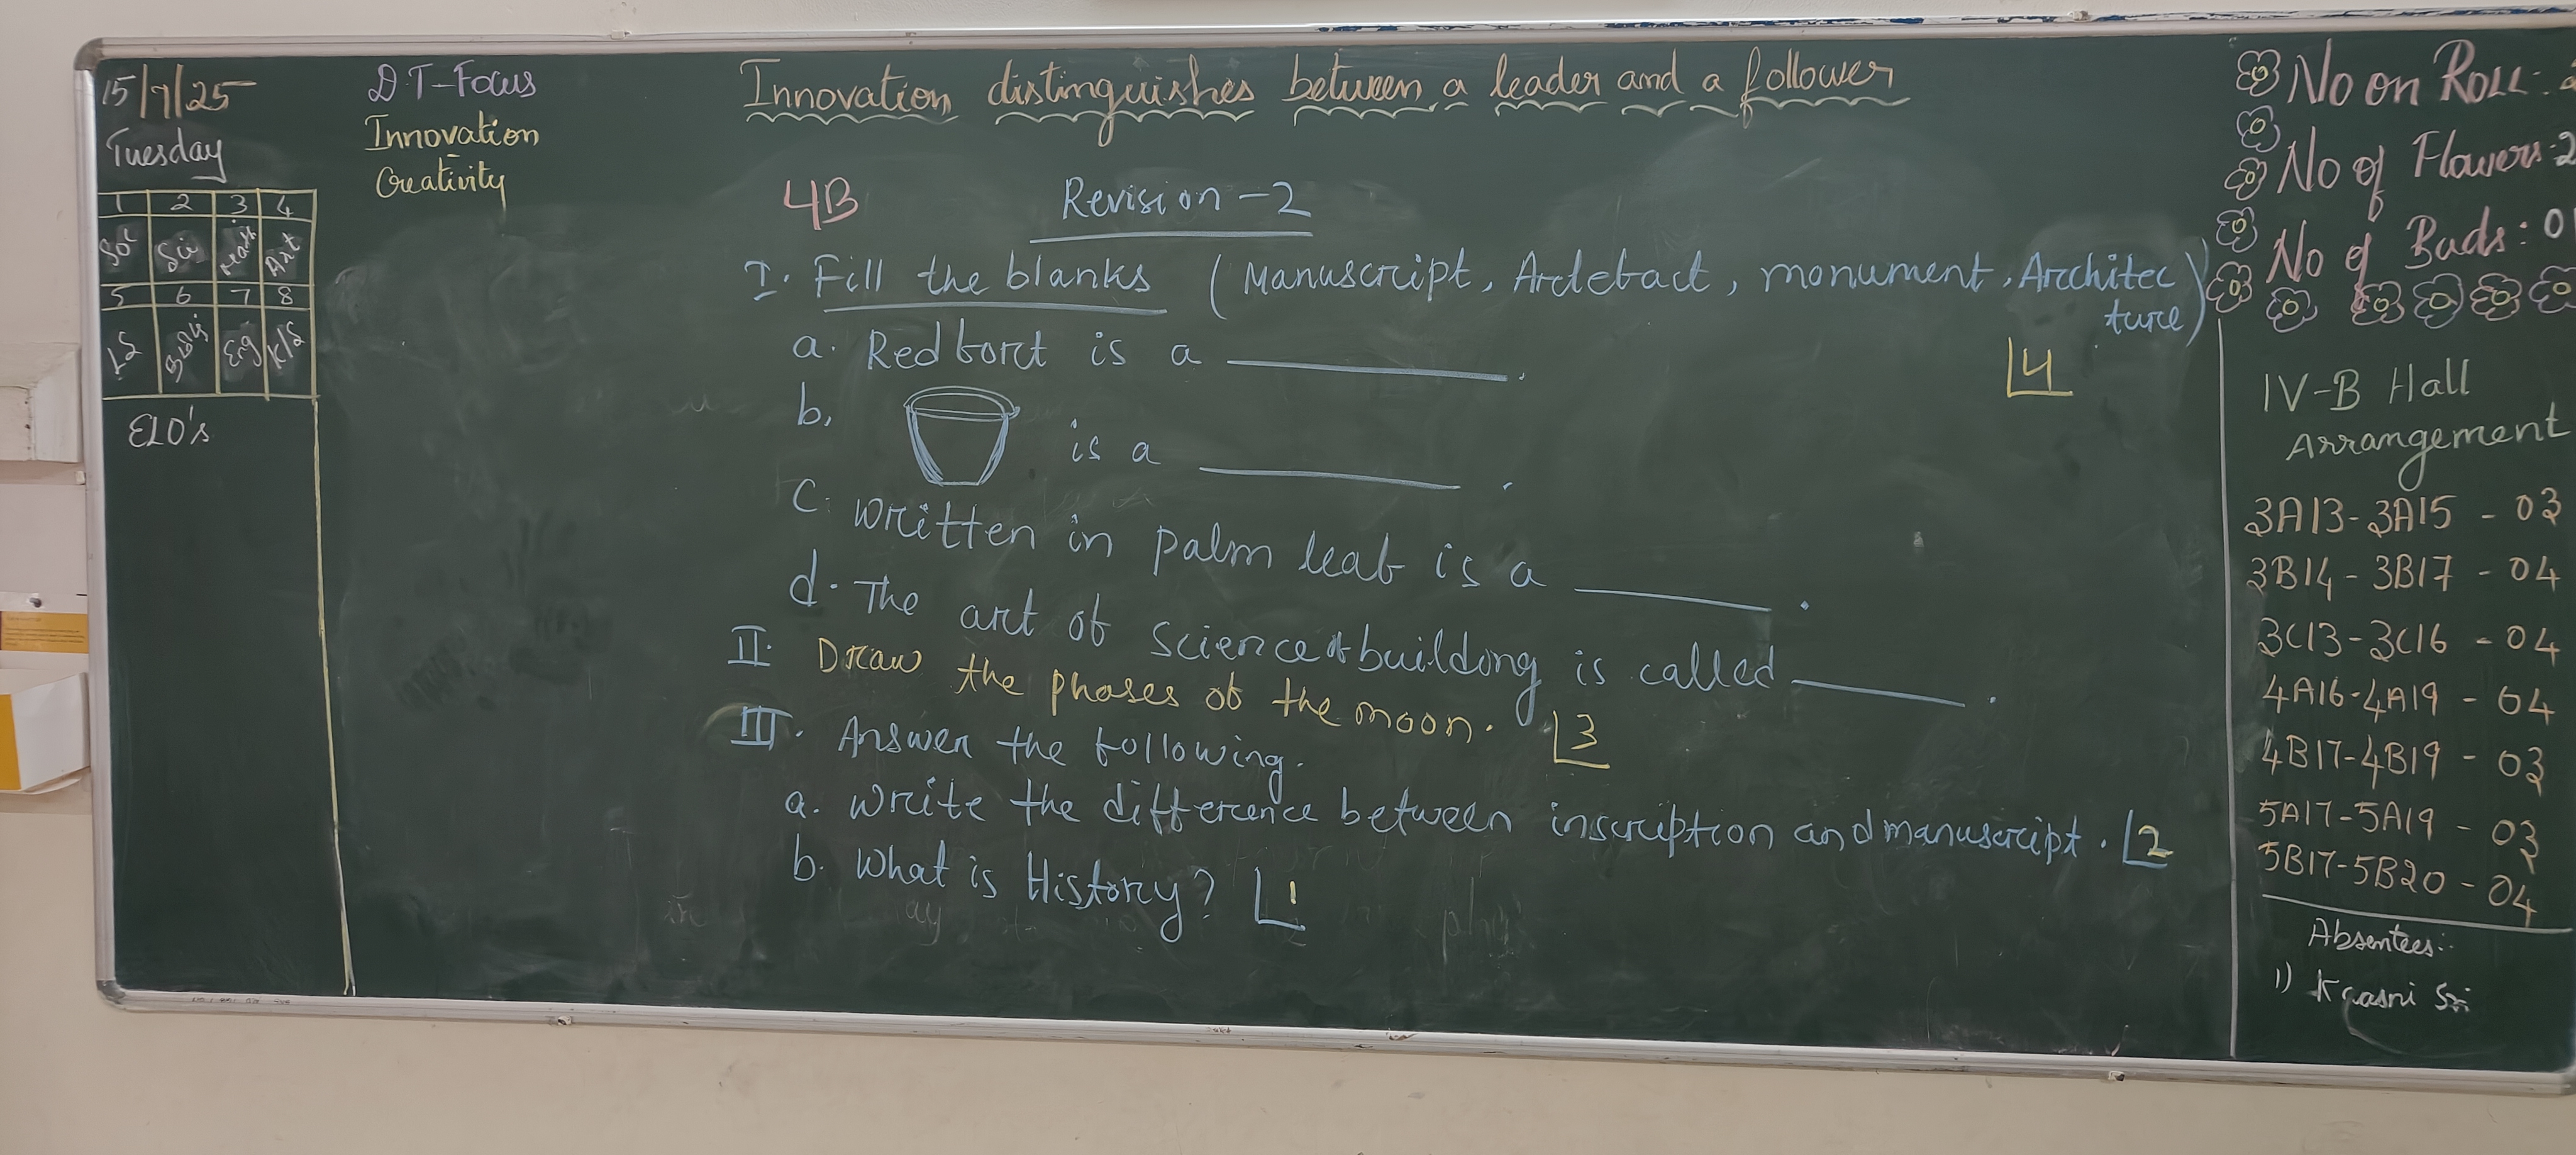 15/7/25
Tuesday
1 2 3 4
Soc Sci Math Art
5 6 7 8
Eng K/S
ELO's
D.T-Focus
Innovation
Creativity
Innovation distinguishes between a leader and a follower
4B Revision-2
I. Fill the blanks (Manuscript, Artefact, monument, Architec
ture)
a. Red fort is a ________.
4
b. is a ________.
c. written in palm leaf is a ________.
d. The art of science & building is called ________.
II. Draw the phases of the moon. 3
III. Answer the following.
a. write the difference between inscription and manuscript. 2
b. What is History? 1
No on Roll:
No of Flowers: 2
No of Buds: 0
IV-B Hall
Arrangement
3A13-3A15 - 03
3B14-3B17 - 04
3C13-3C16 - 04
4A16-4A19 - 04
4B17-4B19 - 03
5A17-5A19 - 03
5B17-5B20 - 04
Absentees:
1) Sri